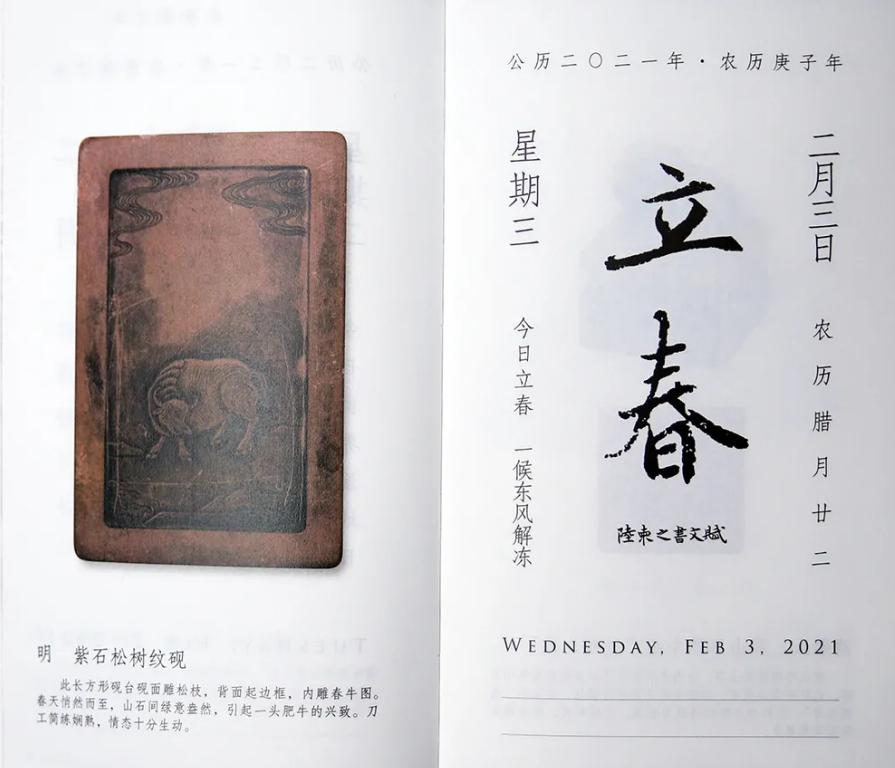 明 紫石松树纹砚
此长方形砚台砚面雕松枝，背面起边框，内雕春牛图。
春天悄然而至，山石间绿意盎然，引起一头肥牛的兴致。刀
工简练娴熟，情态十分生动。
公历二〇二一年·农历庚子年
二月三日
农历腊月廿二
立春
陸柬之書文賦
星期三
今日立春 一候东风解冻
WEDNESDAY, FEB 3, 2021